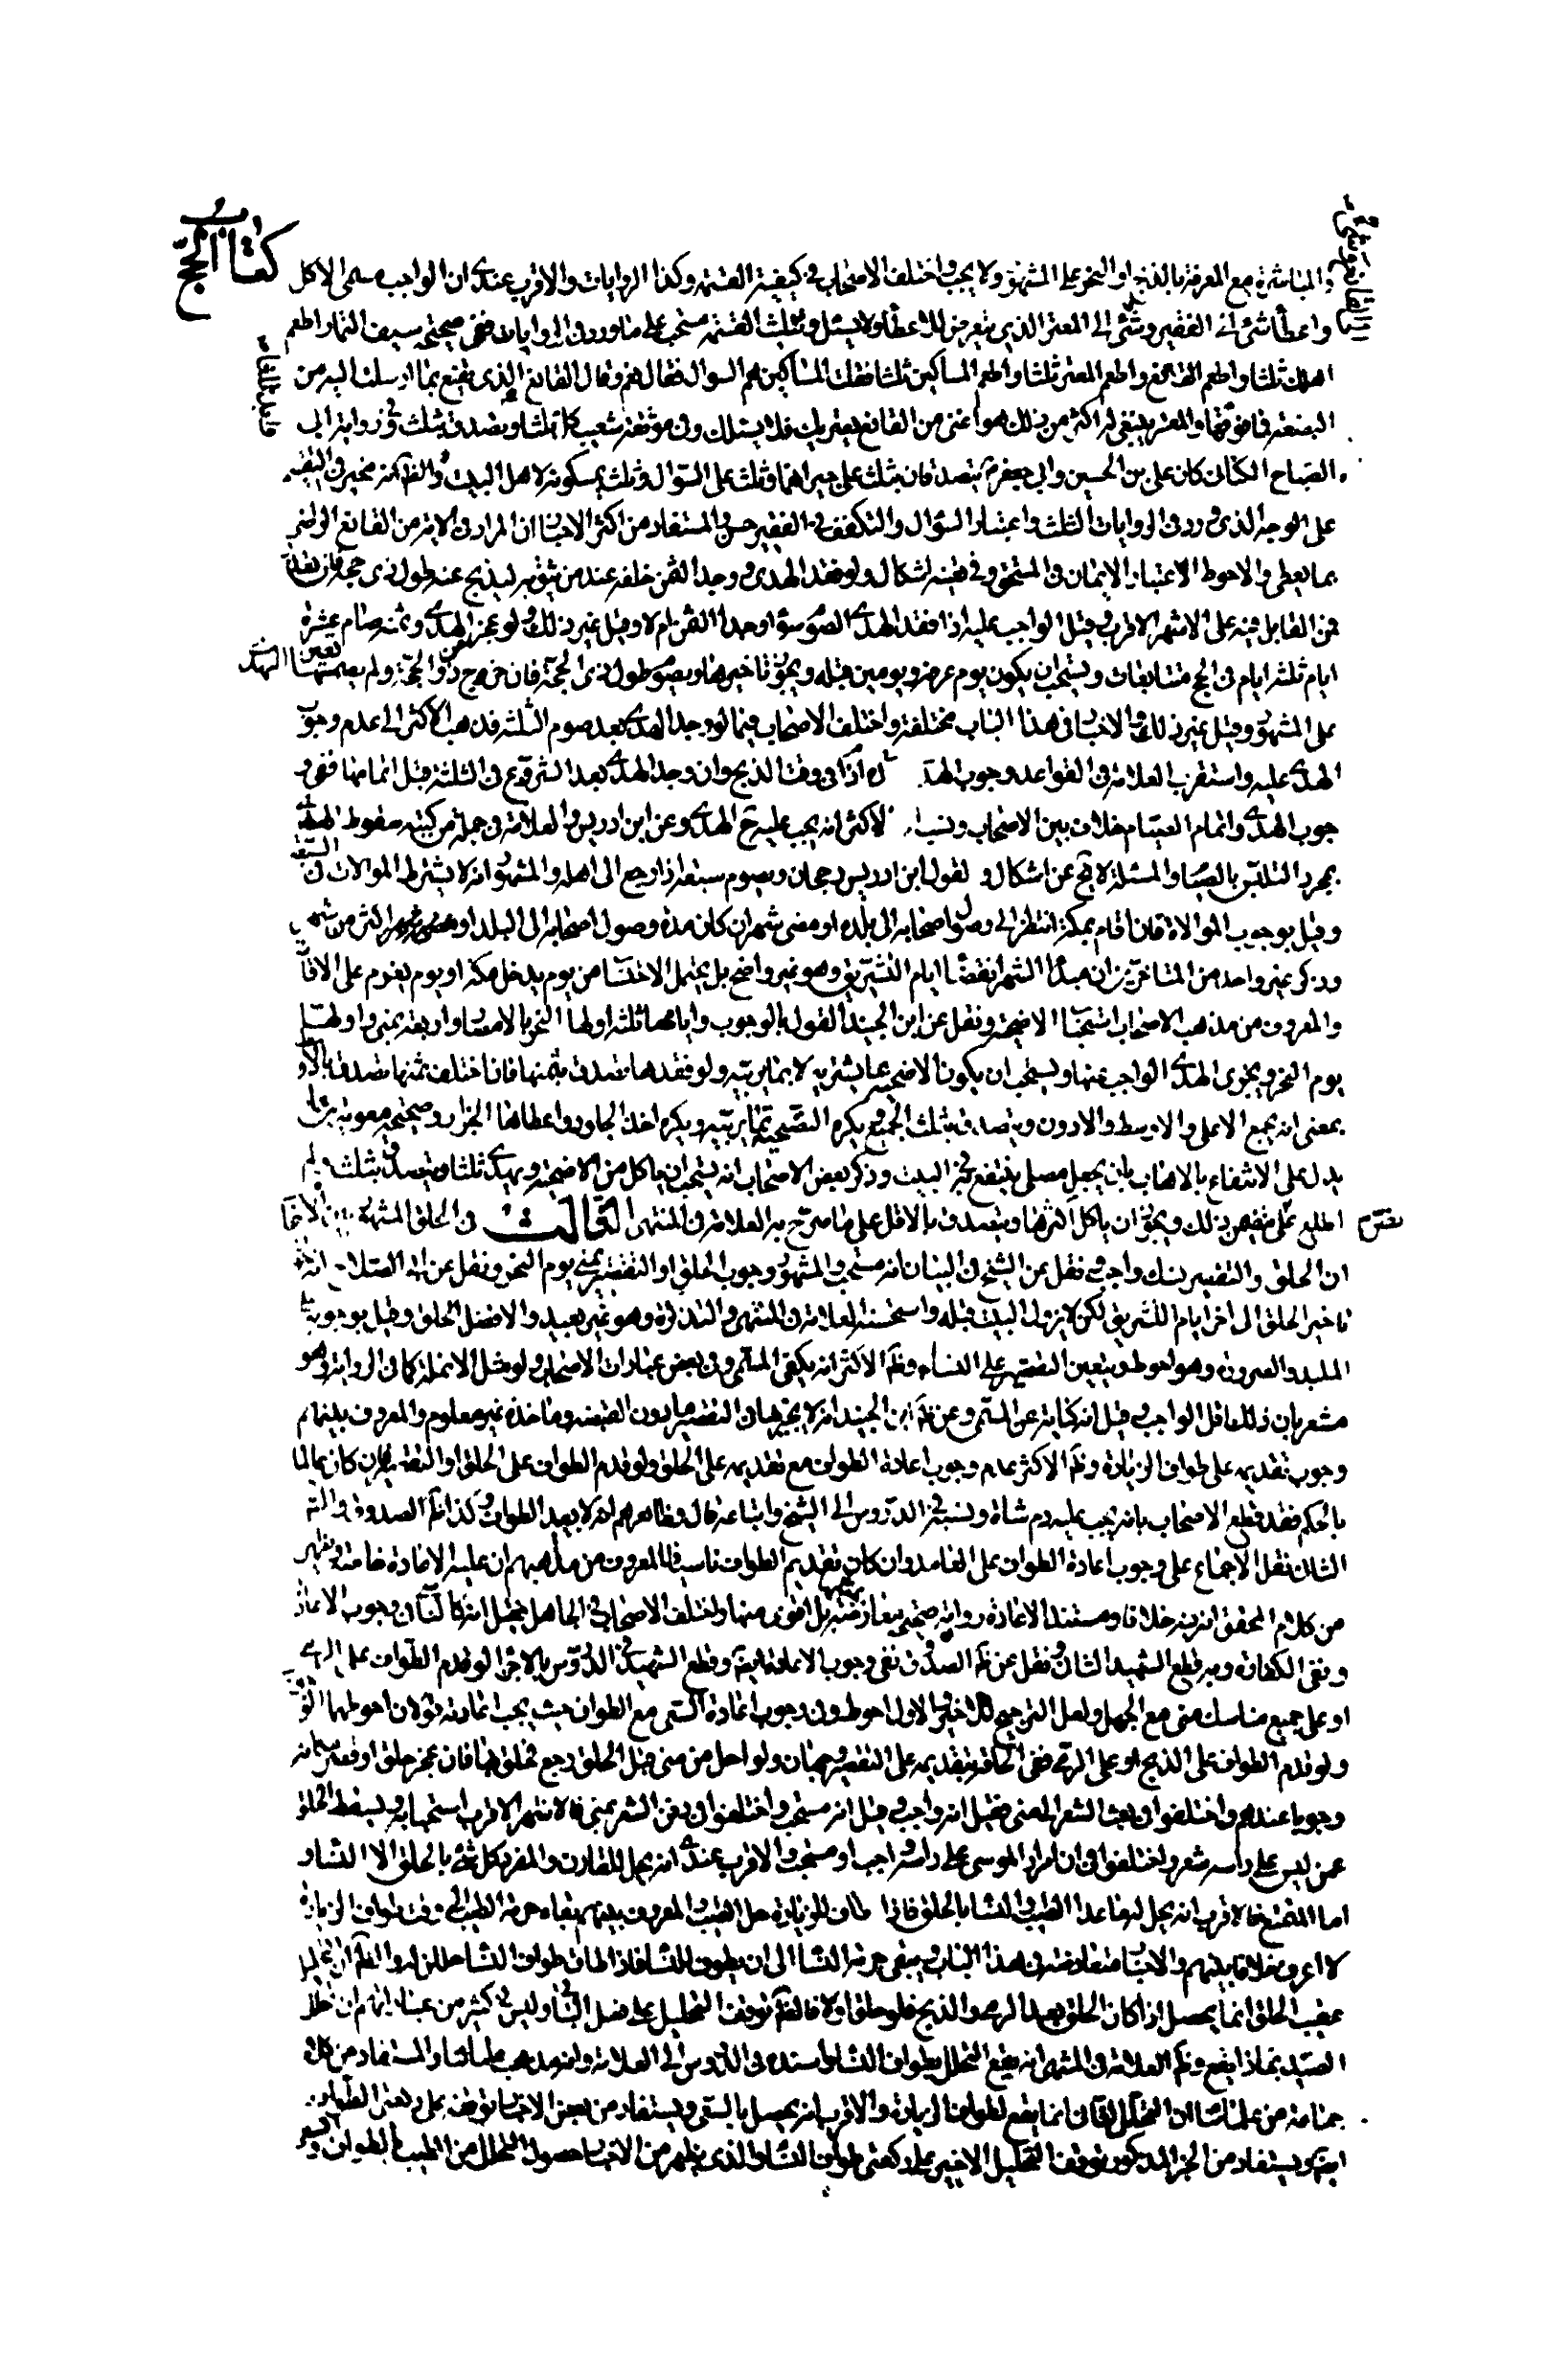 كتاب الحج
المباشرة مع المعرفة بالذبح او النحر على المشهور ولا يجب واختلف الاصحاب في كيفية القسمة وكذا الروايات والاقرب عندي ان الواجب مسمى الاكل
واعطاء شئ الى الفقير وشئ الى المعتر الذي يتعرض للاعطاء ولا يسئل وتثليث القسمة مستحب على ما ورد في الروايات ففي صحيحة سيف التمار اطعم
اهلك ثلثا واطعم القانع واطعم المعتر ثلثا واطعم المساكين ثلثا فقلت المساكين هم السوال فقال نعم وقال القانع الذي يقنع بما ارسلت اليه من
البضعة فما فوقها والمعتر ينبغي له اكثر من ذلك هو اغنى من القانع يعتريك فلا يسئلك وفي موثقة شعيب كل ثلثا وتصدق بثلث وفي رواية ابي
الصباح الكناني كان علي بن الحسين وابي جعفر يتصدقان بثلث على جيرانهما وثلث على السؤال وثلث يمسكونه لاهل البيت والظ انه مخير في
على الوجه الذي ورد في الروايات الثلث واعتبار السؤال والتكفف في الفقير حسن والمستفاد من اكثر الاخبار ان المراد في الاية من القانع الراضي
بما يعطى والاحوط الاعتبار الايمان في المستحق وفي تعينه اشكال ولو فقد الهدي ووجد الثمن خلفه عند من يثق به ليذبح عنه طول ذي حجة فان تعذر
فمن القابل فيه على الاشهر الاقرب وقيل الواجب عليه اذا فقد الهدي الصوم سواء وجد الثمن ام لا وقيل غير ذلك ولو عجز عن الهدي وثمنه صام عشرة
ايام ثلثة ايام في الحج متتابعات ويستحب ان يكون يوم عرفة ويومين قبله ويجوز تاخيرها ويصوم طول ذي الحجة فان خرج ذو الحجة ولم يصمها تعين الهدي
على المشهور وقيل غير ذلك والاخبار في هذا الباب مختلفة واختلف الاصحاب فيما لو وجد الهدي بعد صوم الثلثة فذهب الاكثر الى عدم وجوب
الهدي عليه واستقرب العلامة في القواعد وجوب الهدي في وقت الذبح وان وجد الهدي بعد الشروع في الثلثة قبل اتمامها ففي و
جوب الهدي واتمام الصيام خلاف بين الاصحاب ونسب الاكثر انه يجب عليه ح الهدي وعن ابن ادريس والعلامة في جملة من كتبه سقوط الهدي
بمجرد التلبس بالصيام والمسئلة لا تخ عن اشكال ولقول ابن ادريس رجحان ويصوم سبعة اذا رجع الى اهله والمشهور انه لا يشترط الموالات في السبعة
وقيل بوجوب الموالاة فان اقام بمكة انتظر الى وصول اصحابه الى بلده او مضى شهر ان كان مدة وصول اصحابه الى البلد اكثر من شهر
وذكر غير واحد من المتاخرين ان مبدأ الشهر انقضاء ايام التشريق وهو غير واضح بل يحتمل الاحتساب من يوم يدخل مكة او يوم يعزم على الاقامة
والمعروف من مذهب الاصحاب استحباب الاضحية ونقل عن ابن الجنيد القول بالوجوب وايامها ثلثة اولها النحر بالامصار واربعة بمنى واولها
يوم النحر ويجزي الهدي الواجب عنها ويستحب ان يكون الاضحية مما يشتريه لا بما يربيه ولو فقدها تصدق بثمنها فان اختلف ثمنها تصدق بالاوسط
بمعنى انه يجمع الاعلى والاوسط والادون ويتصدق بثلث الجميع ويكره التضحية بما يربيه ويكره اخذ الجلود واعطائها الجزار وصحيحة معوية بن عمار
يدل على الانتفاع بالاهاب بان يجعل مصلى ينتفع في البيت وذكر بعض الاصحاب انه يستحب ان ياكل من الاضحية ويهدي ثلثا ويتصدق بثلث ولم
اطلع على نص يتضمن ذلك ويجوز ان ياكل اكثرها ويتصدق بالاقل على ما صرح به العلامة في المنتهى الثالث في الحلق المشهور بين الاصحاب
ان الحلق والتقصير نسك واجب ونقل عن الشيخ في التبيان انه مستحب والمشهور وجوب الحلق او التقصير بمنى يوم النحر ونقل عن ابي الصلاح انه
تاخير الحلق الى اخر ايام التشريق لكن لا يزور البيت قبله واستحسنه العلامة في المنتهى والتذكرة وهو غير بعيد والافضل الحلق وقيل بوجوبه على
الملبد والصرورة وهو احوط ويتعين التقصير على النساء وظ الاكثر انه يكفي المسمى وفي بعض عبارات الاصحاب ولو مثل الانملة كما في الرواية وهو
مشعر بان ذلك اقل الواجب وقيل انه كناية عن المسمى وعن ظ ابن الجنيد انه لا يجزيها في التقصير ما دون القبضة وماخذه غير معلوم والمعروف بينهم
وجوب تقديمه على طواف الزيارة وظ الاكثر عدم وجوب اعادة الطواف مع تقديمه على الحلق ولو قدم الطواف على الحلق او التقصير فان كان عالما
بالحكم فقد قطع الاصحاب بانه يجب عليه دم شاة ونسبه في الدروس الى الشيخ واتباعه قال وظاهرهم انه لا يعيد الطواف وكذا ظ الصدوق والشهيد
الثاني نقل الاجماع على وجوب اعادة الطواف على العامد وان كان تقديم الطواف ناسيا فالمعروف من مذهبهم ان عليه الاعادة خاصة ويظهر
من كلام المحقق ان فيه خلافا ومستند الاعادة رواية صحيحة يعارضها بل اقوى منها واختلف الاصحاب في الجاهل فقيل انه كالناسي في وجوب الاعادة
ونفي الكفارة وبه قطع الشهيد الثاني ونقل عن ظ الصدوق نفي وجوب الاعادة ايضا وقطع الشهيد في الدروس بالاجزاء لو قدم الطواف على الرمي
او على جميع مناسك منى مع الجهل ولعل الترجيح لذلك والاول احوط وفي وجوب اعادة السعي مع الطواف حيث يجب اعادته قولان احوطهما
ولو قدم الطواف على الذبح او على الرمي ففي الحاقه بتقديمه على التقصير وجهان ولو رحل من منى قبل الحلق رجع فحلق بها فان عجز حلق او قصر مكانه
وجوبا عندهم واختلفوا في بعث الشعر الى منى فقيل انه واجب وقيل انه مستحب واختلفوا في دفن الشعر بمنى فالاشهر الاقرب استحبابه ويسقط الحلق
عمن ليس على راسه شعر واختلفوا في ان امرار الموسى على راسه واجب او مستحب والاقرب عندي انه يحل للقارن والمفرد كل شئ بالحلق الا النساء
اما المتمتع فالاقرب انه يحل له ما عدا الطيب والنساء بالحلق فاذا طاف للزيارة حل الطيب والمعروف بينهم بقاء حرمة الطيب الى وقت طواف الزيارة
لا اعرف خلافا بينهم والاخبار متعارضة في هذا الباب ويبقى حرمة النساء الى ان يطوف للنساء فاذا طاف طواف النساء حللن له والظ ان
عقيب الحلق انما يحصل اذا كان الحلق بعد الرمي والذبح فلو حلق اولا فالظ توقف التحليل على فعل الباقي وليس في كثير من عباراتهم ان تحلل
الصيد بماذا يقع وظ العلامة في المنتهى انه يقع التحلل بطواف النساء واسنده في الدروس الى العلامة وانه مذهب علمائنا والمستفاد من كلام
جماعة من علمائنا ان التحلل الثاني انما يقع لطواف الزيارة والاقرب انه يحصل بالسعي ويستفاد من بعض الاخبار توقفه على ركعتي الطواف
ايضا ويستفاد من الخبر المذكور توقف التحليل الاخير على ركعتي طواف النساء والذي يظهر من الاخبار حصول التحلل من الطيب بالطواف والسعي